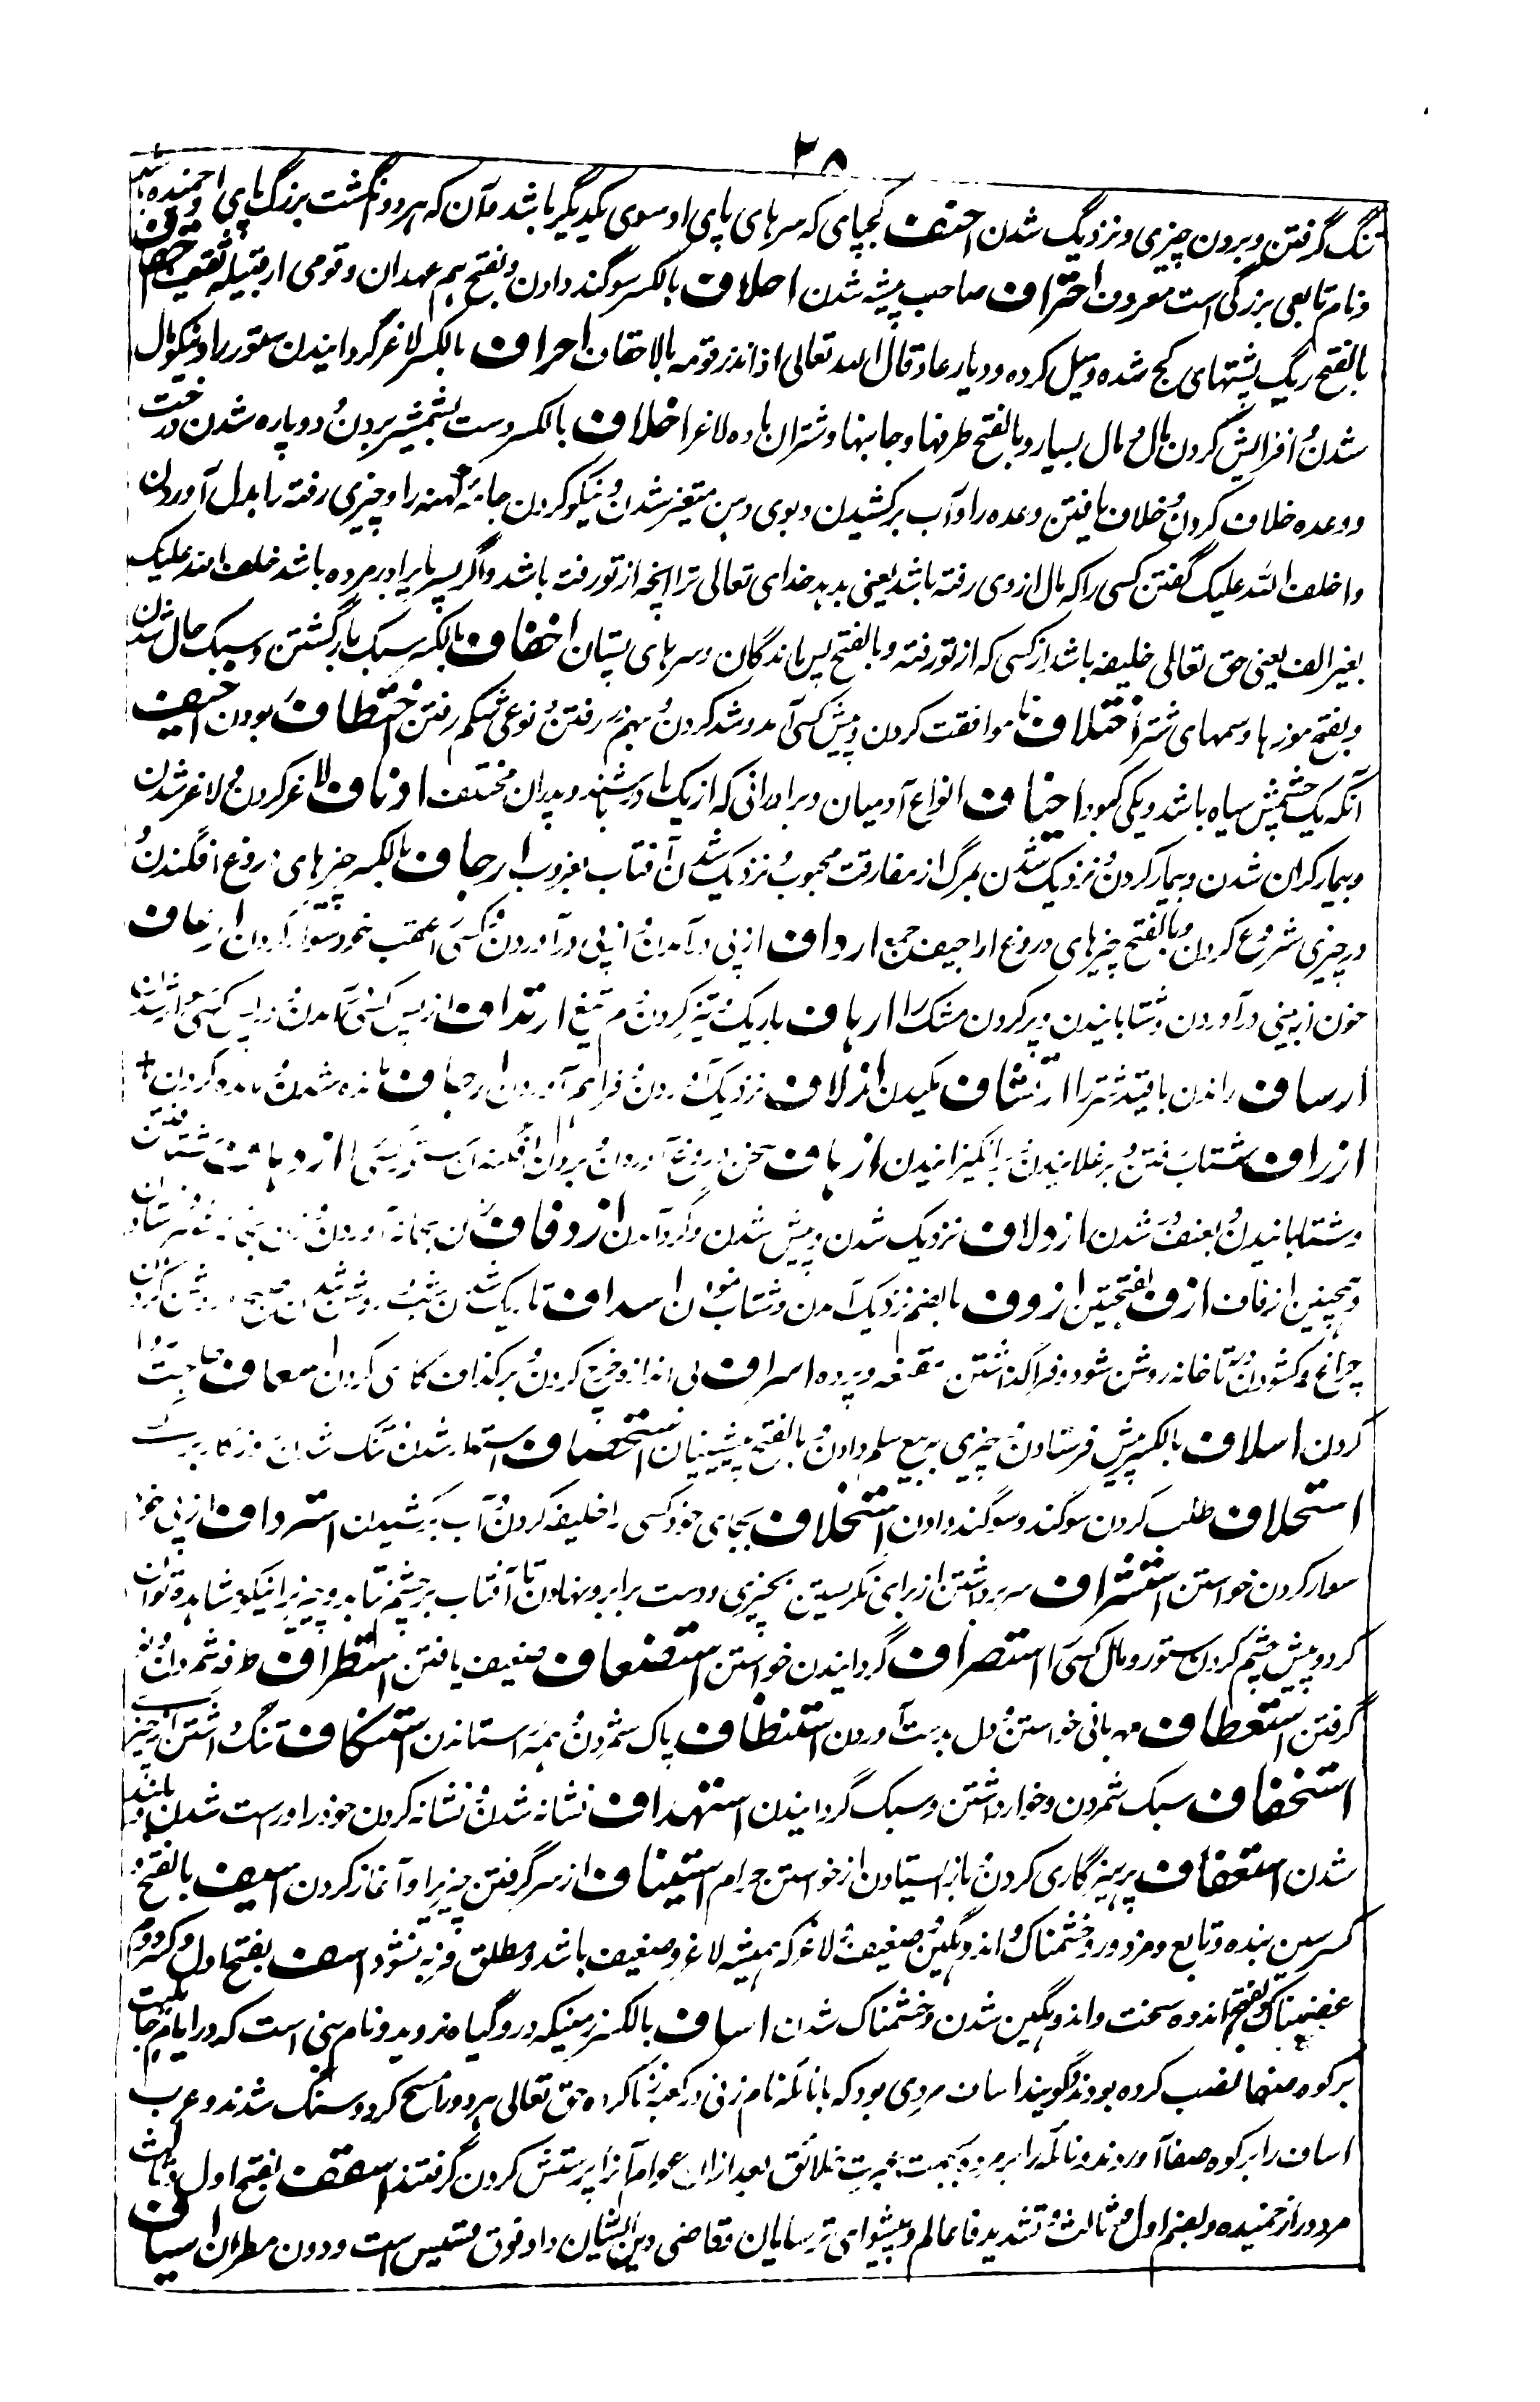 ۳۸
تنگ گرفتن و برون چیزی و نزدیک شدن احنف کجپای که سرهای پای او سوی یکدیگر باشد و آن که هر دو انگشت بزرگ پای او خمیده باشد
و نام تابعی بزرگی است معروف احتراف صاحب پیشه شدن احلاف بالکسر سوگند دادن و بفتح هم عهدان و قومی از قبیله ثقیف احقاف
بالفتح ریگ پشتهای کج شده و میل کرده و دیار عاد قال الله تعالی اذ انذر قومه بالاحقاف احراف بالکسر لاغر گردانیدن ستور را و نیکو مال
شدن و افزایش کردن مال و مال بسیار و بالفتح طرفها و جانبها و شتران ماده لاغر اخلاف بالکسر دست بشمشیر بردن و دوپاره شدن درخت
و وعده خلاف کردن و خلاف یافتن وعده را و آب برکشیدن و بوی دهن متغیر شدن و نیکو کردن جامه کهنه را و چیزی رفته را بدل آوردن
و اخلف الله علیک گفتن کسی را که مال از وی رفته باشد یعنی بدهد خدای تعالی ترا آنچه از تو رفته باشد و اگر پسر یا برادر مرده باشد خلف الله علیک
بغیر الف یعنی حق تعالی خلیفه باشد از کسی که از تو رفته و بالفتح پس ماندگان و سرهای پستان اخفاف بالکسر سبک بار گشتن و سبک حال شدن
و بفتح موزه ها و سمهای شتر اختلاف نا موافقت کردن و پیش کسی آمد و شد کردن و بهم رفتن و نوعی شکم رفتن اختطاف ربودن اخیف
آنکه یک چشمش سیاه باشد و یکی کبود اخیاف انواع آدمیان و برادرانی که از یک مادر باشند و پدران مختلف اذناف لاغر کردن و لاغر شدن
و بیمار گران شدن و بیمار کردن و نزدیک شدن بمرگ از مفارقت محبوب و نزدیک شدن آفتاب بغروب ارجاف بالکسر چیزهای دروغ افگندن و
در چیزی شروع کردن و بالفتح چیزهای دروغ اراجیف جمع ارداف از پی در آمدن و از پی در آوردن و کسی را عقب خود سوار کردن ارعاف
خون از بینی در آوردن و شتابانیدن و پر کردن مشک را ارهاف باریک و تیز کردن دم تیغ ارتداف از پس کسی
ارساف راندن با قید شتر را ارتشاف مکیدن ازلاف نزدیک آوردن و فراهم آوردن ارجاف
ازراف شتاب رفتن و برغلانیدن و برانگیزانیدن ازهاف سخن دروغ آوردن
و شتابانیدن و بعنف شدن ازدلاف نزدیک شدن و پیش شدن و گرد آمدن ازدفاف زن بخانه آوردن
و همچنین ازفاف ازف بفتحتین ازوف بالضم نزدیک آمدن و شتاب نمودن اسداف تاریک شدن شب و روشن شدن
چراغ و کشودن در تا خانه روشن شود و فرا گذاشتن مقنعه و پرده اسراف بی اندازه خرج کردن و برگذاف کاری کردن اسعاف حاجت روا
کردن اسلاف بالکسر پیش فرستادن چیزی به بیع سلم دادن و بالفتح پیشینیان استحصاف استوار شدن و تنگ شدن
استحلاف طلب کردن سوگند و سوگند دادن استخلاف بجای خود کسی را خلیفه کردن و آب برکشیدن استرداف از پی خود
سوار کردن خواستن استشراف سر برداشتن از برای نگریستن بچیزی و دست برابرو نهادن تا آفتاب بر چشم نتابد و چیز را نیکو مشاهده توان
کرد و پیش چشم کردن ستور و مال کسی را استصراف گردانیدن خواستن استضعاف ضعیف یافتن استطراف طرفه شمردن و نو
گرفتن استعطاف مهربانی خواستن و دل بدست آوردن استنظاف پاک شمردن و همه استاندن استنکاف ننگ داشتن از چیزی
استخفاف سبک شمردن و خوار داشتن و سبک گردانیدن استهداف نشانه شدن و نشانه کردن خود را و راست شدن و بلند
شدن استعفاف پرهیزگاری کردن و باز استیادن از خواستن حرام استیناف از سر گرفتن چیزی را و آغاز کردن اسیف بالفتح و
کسر سین بنده و تابع و مزدور و خشمناک و اندوهگین و ضعیف و لاغر که همیشه لاغر و ضعیف باشد و مطلق فربه نشود اسف بفتح اول و کسر دوم
غضبناک و بفتح اندوه سخت و اندوهگین شدن و خشمناک شدن اساف بالکسر زمینیکه درو گیاه نروید و نام بتی است که در ایام جاهلیت
بر کوه صفا نصب کرده بودند و گویند اساف مردی بود که با نائله نام زنی در کعبه زنا کرده حق تعالی هر دو را مسخ کرد و سنگ شدند و عرب
اساف را بر کوه صفا آوردند و نائله را بر مروه بجهت عبرت خلائق بعد ازان عوام آنرا پرستش کردن گرفتند اسقف بفتح اول و ثالث
مرد دراز خمیده و بضم اول و ثالث و تشدید فا عالم و پیشوای ترسایان و قاضی دین ایشان و او فوق قسیس است و دون مطران اسیاف